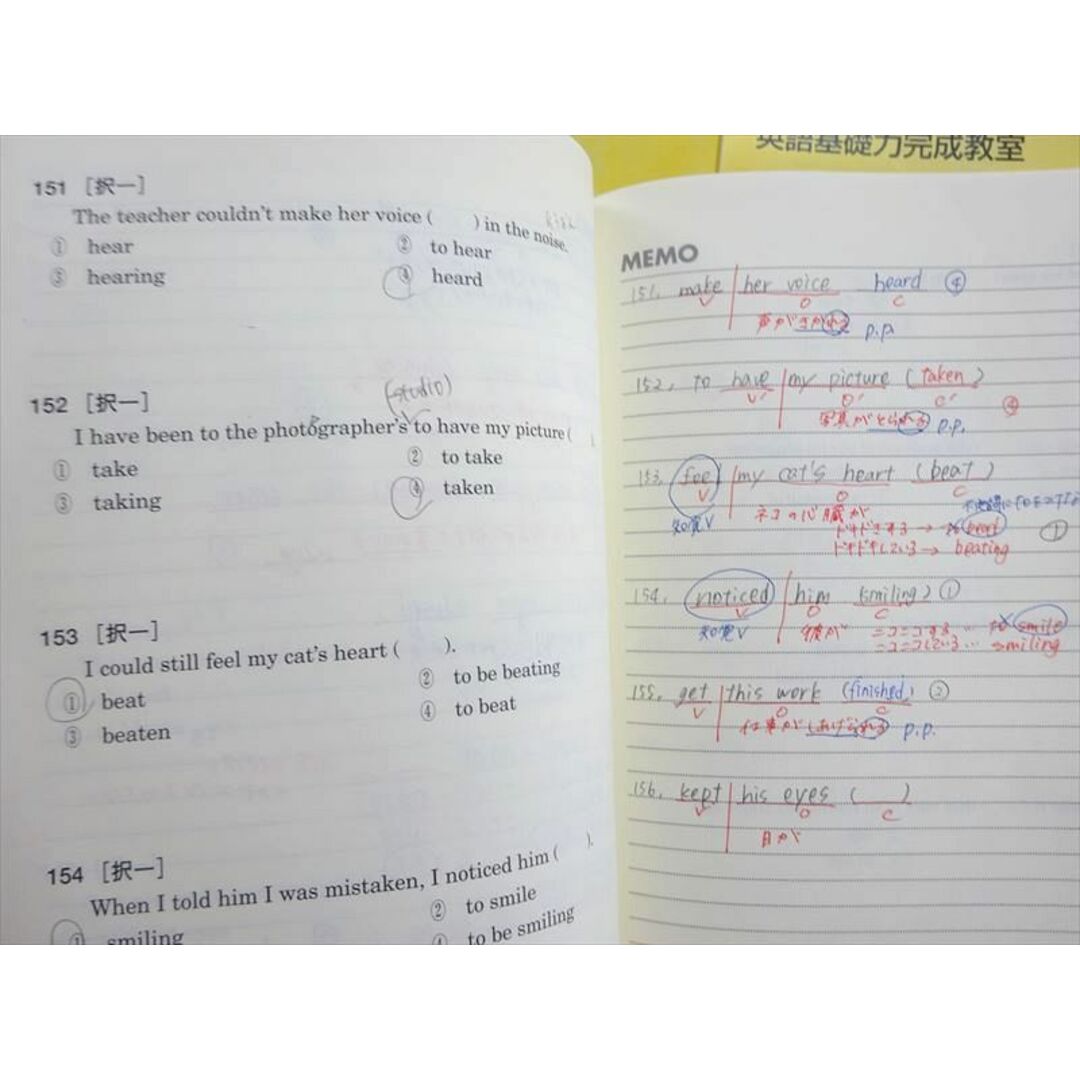 151 [択一]
The teacher couldn't make her voice ( ) in the noise.
① hear ② to hear
③ hearing ④ heard
152 [択一]
(studio)
I have been to the photographer's to have my picture ( ).
① take ② to take
③ taking ④ taken
153 [択一]
I could still feel my cat's heart ( ).
① beat ② to be beating
③ beaten ④ to beat
154 [択一]
When I told him I was mistaken, I noticed him ( ).
① smiling ② to smile
④ to be smiling
英語基礎力完成教室
MEMO
151. make her voice heard ④
V O C
声が p.p
152. to have my picture (taken)
V' O' C' ④
写真がとられる p.p.
153. feel my cat's heart (beat)
V O C
知覚V ネコの心臓が
ドキドキする → to beat ①
ドキドキしている → beating
154. noticed him (smiling) ①
V O C
知覚V 彼が ニコニコする … to smile
ニコニコしている … smiling
155. get this work (finished) ②
V O C
仕事がしあげられる p.p.
156. kept his eyes ( )
V O C
目が